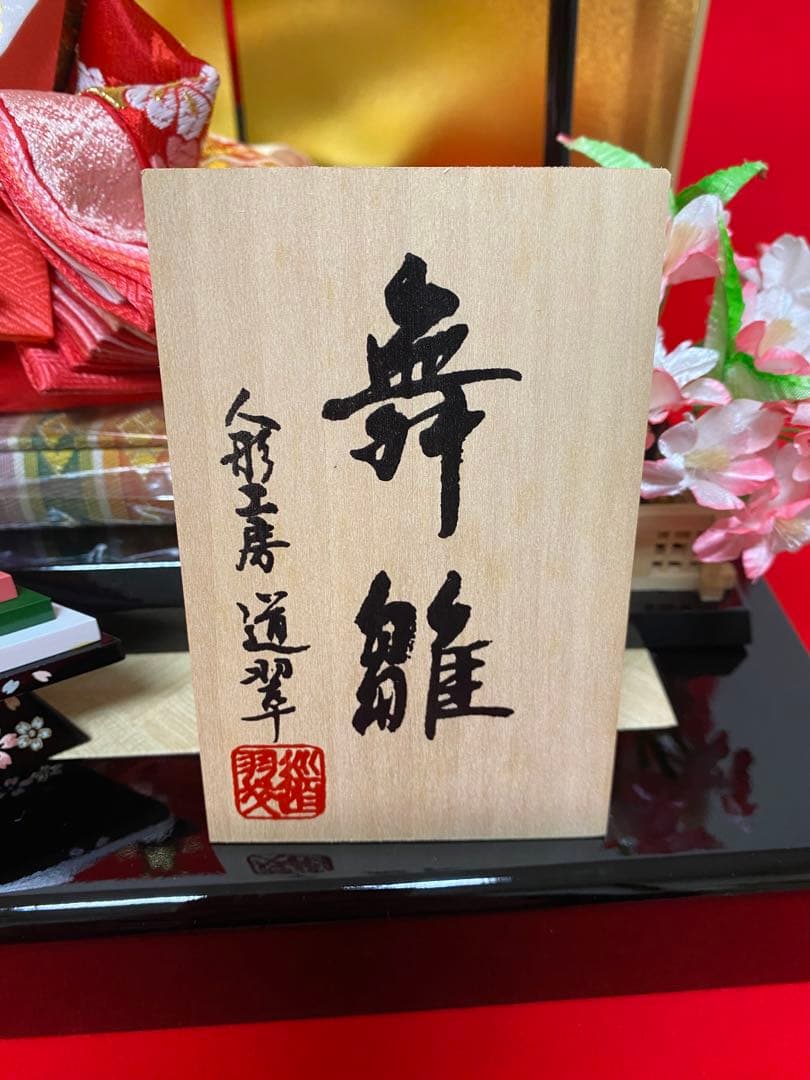 舞雛
人形工房 道翠
道翠